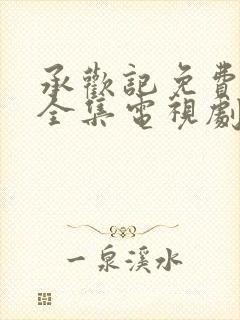 承歡記免費
全集電視劇
一泉溪水